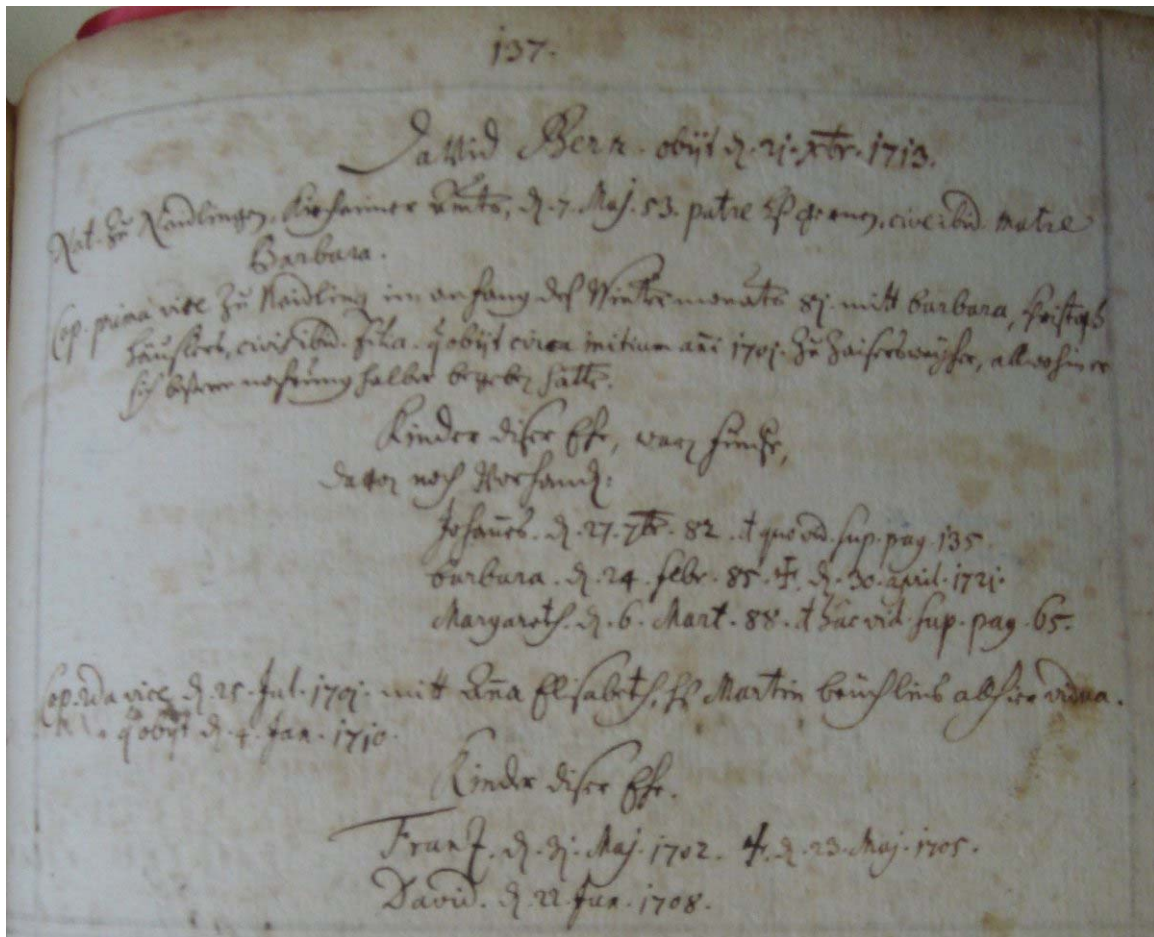 137.
David Bern. obijt d. 21. Xbr. 1713.
Nat. zu Naidlingen, Kirchaimer Ambts, d. 7. Maj. 53. patre cive ibid. matre
Barbara.
Cop. prima vice zu Naidling im anfang deß Wintermonats 81. mitt barbara,
häußlers, civis ibid. filia. q obijt circa initium añi 1701. zu Zaisersweyher, allwohin er
sich besserer nahrung halber begeben hatte.
Kinder diser Ehe, waren fünfe,
davon noch Vorhand:
Johañes. d. 27. 7br. 82. de quo vid. sup. pag. 135.
barbara. d. 24. febr. 85. †. d. 30. april. 1721.
Margareth. d. 6. Mart. 88. de hac vid. sup. pag. 65.
Cop. 2da vice d. 25. Jul. 1701. mitt Aña Elisabeth, Martin beüchlins allhier vidua.
q obijt d. 4. Jan. 1710.
Kinder diser Ehe.
Frantz. d. 31. Maj. 1702. †. d. 23. Maj. 1705.
David. d. 22. Jun. 1708.